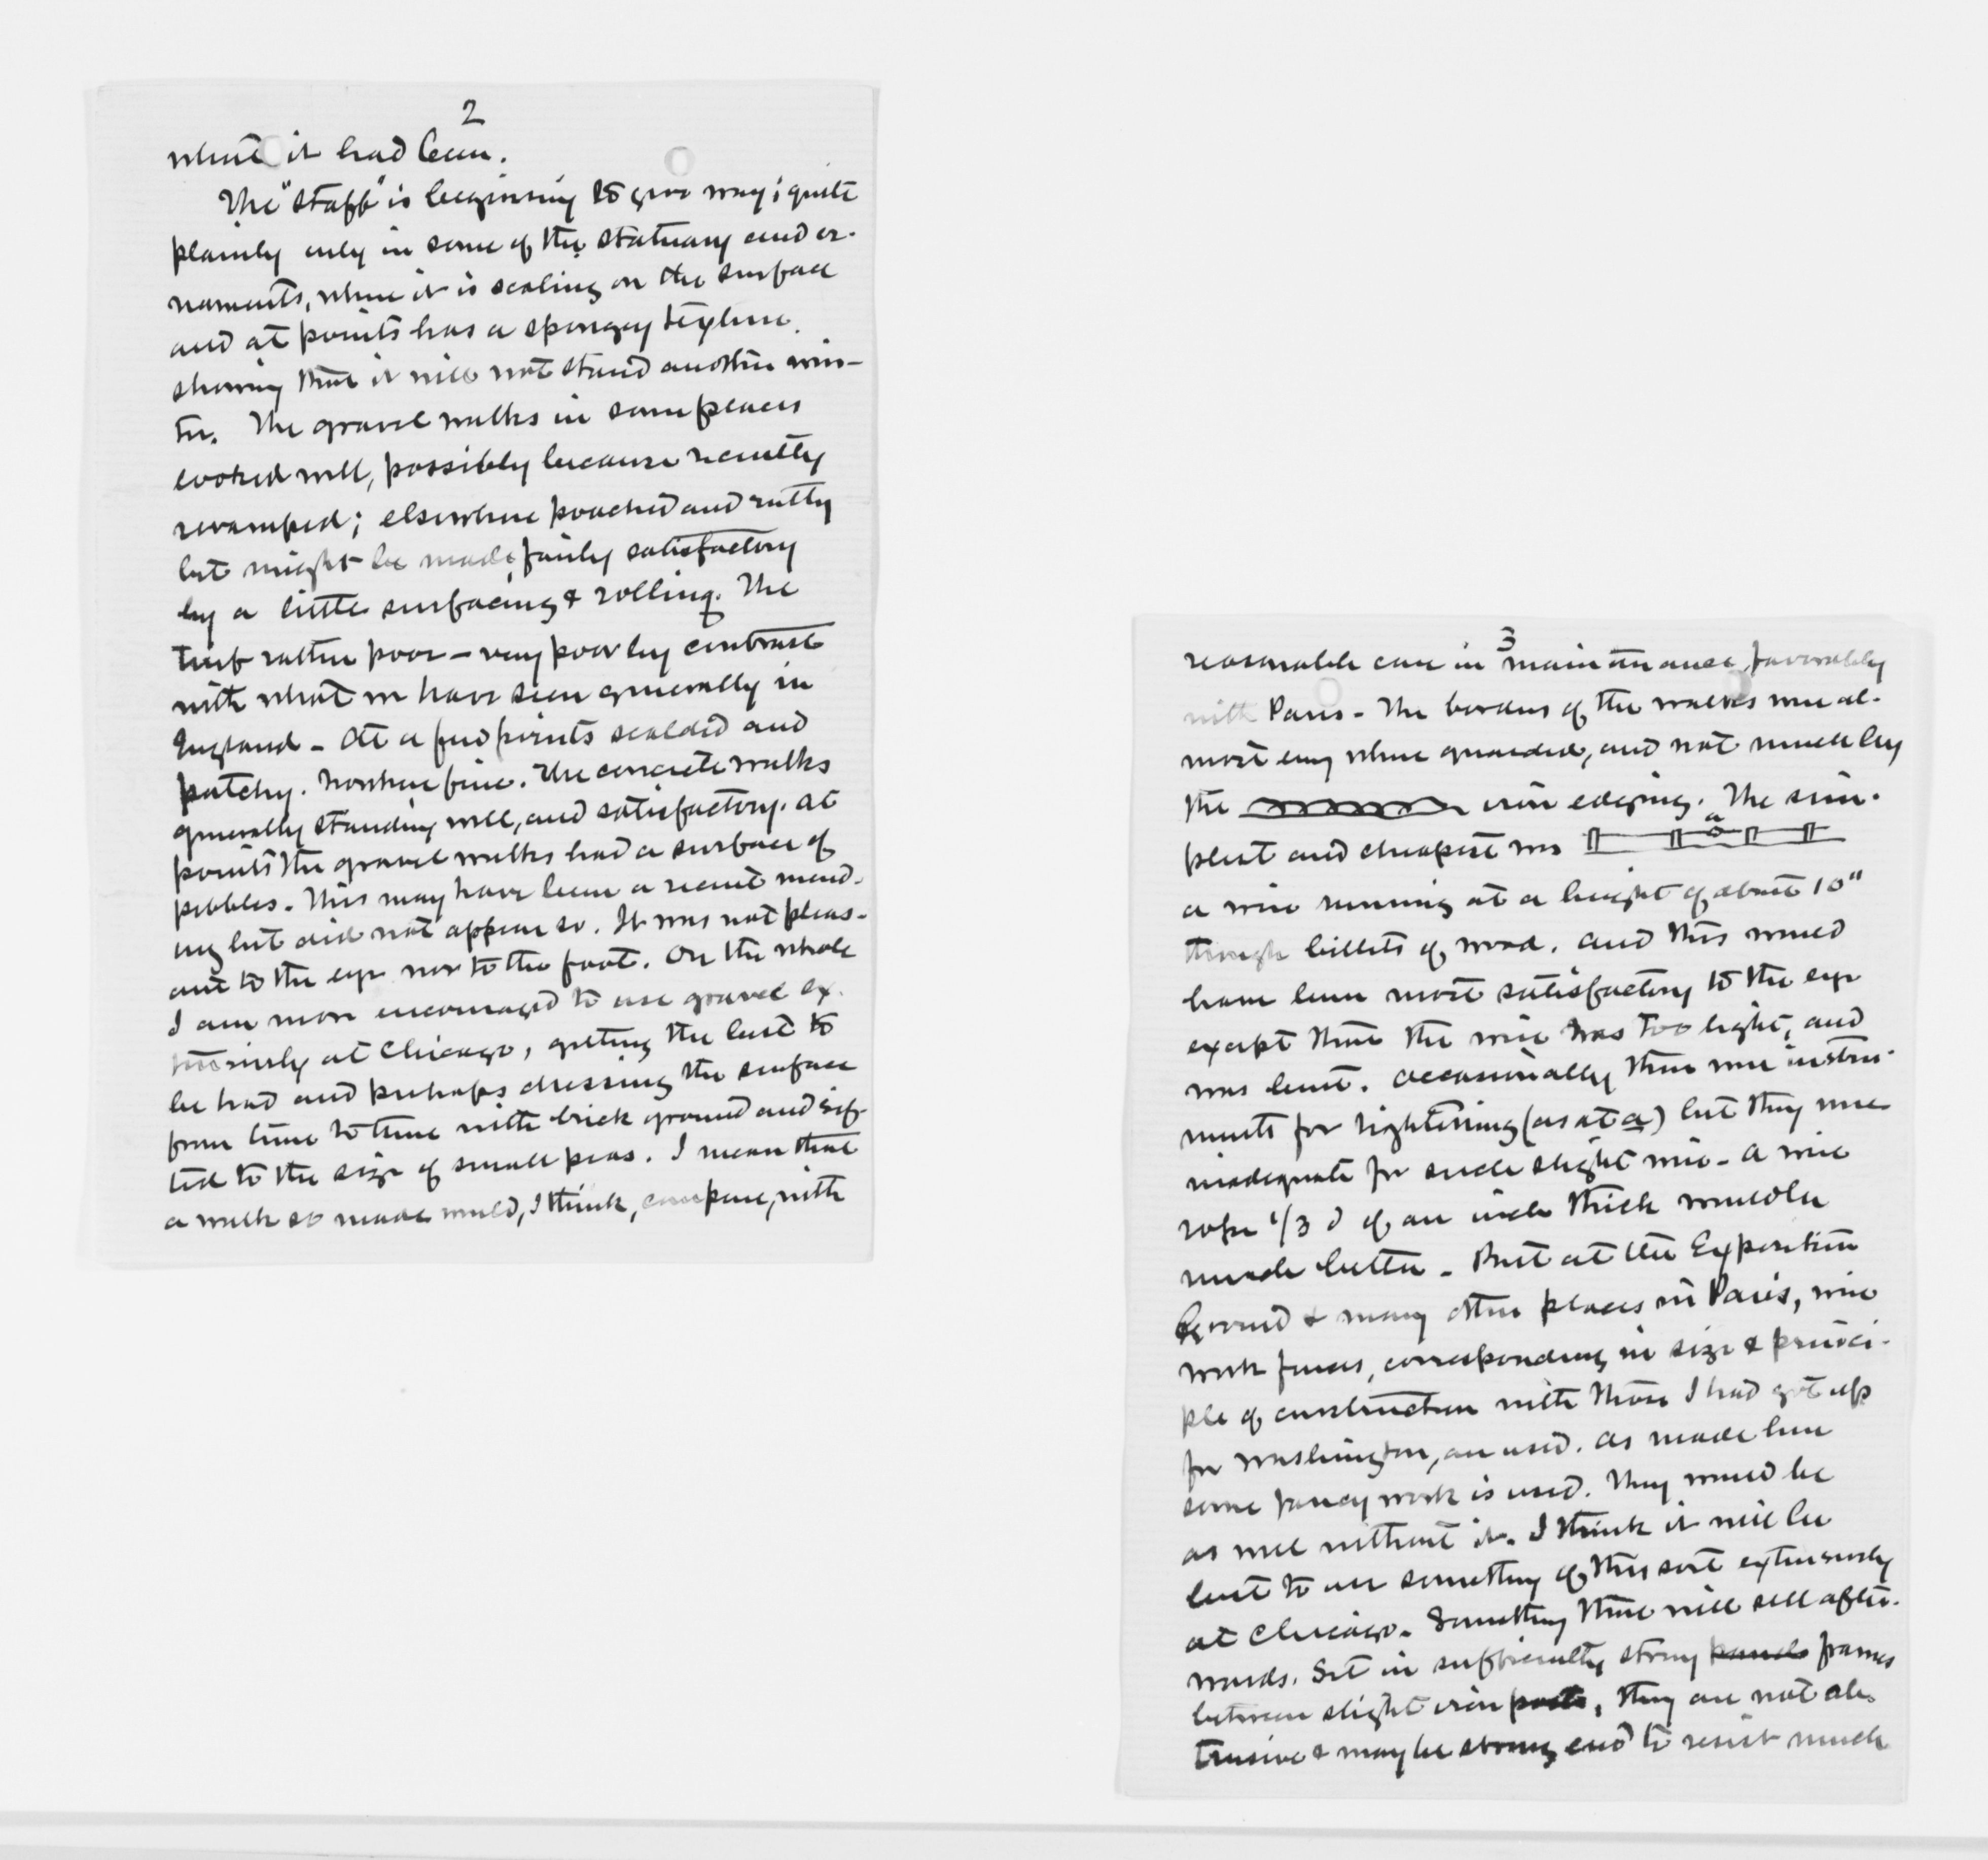 2
what it had been.
The "staff" is beginning to give way; quite
plainly only in some of the statuary and or-
naments, where it is scaling on the surface
and at points has a spongey texture.
showing that it will not stand another win-
ter. The gravel walks in some places
looked well, possibly because recently
revamped; elsewhere poached and rutty
but might be made fairly satisfactory
by a little surfacing & rolling. The
turf rather poor - very poor by contrast
with what we have seen generally in
England - At a few points scalded and
patchy. Nowhere fine. The concrete walks
generally standing well, and satisfactory. At
points the gravel walks had a surface of
pebbles. This may have been a recent mend-
ing but did not appear so. It was not pleas-
ant to the eye nor to the foot. On the whole
I am more encouraged to use gravel ex-
tensively at Chicago, getting the best to
be had and perhaps dressing the surface
from time to time with brick ground and sif-
ted to the size of small peas. I mean that
a walk so made would, I think, compare, with
3
reasonable care in maintenance, favorably
with Paris - The borders of the walks were al-
most every where guarded, and not much by
the iron edging. The sim-
plest and cheapest was
a
a wire running at a height of about 10"
through billets of wood. And this would
have been most satisfactory to the eye
except that the wire was too light, and
was bent. Occasionally there were instru-
ments for tightening (as at a) but they were
inadequate for such slight wire - A wire
rope 1/3 d of an inch thick would be
much better - But at the Exposition
ground & many other places in Paris, wire
work fences, corresponding in size & princi-
ple of construction with those I had got up
for Washington, are used. As made here
some fancy work is used. They would be
as well without it. I think it will be
best to use something of this sort extensively
at Chicago. Something that will sell after-
wards. Set in sufficiently strong panels frames
between slight iron posts, they are not ob-
trusive & may be strong eno' to resist much